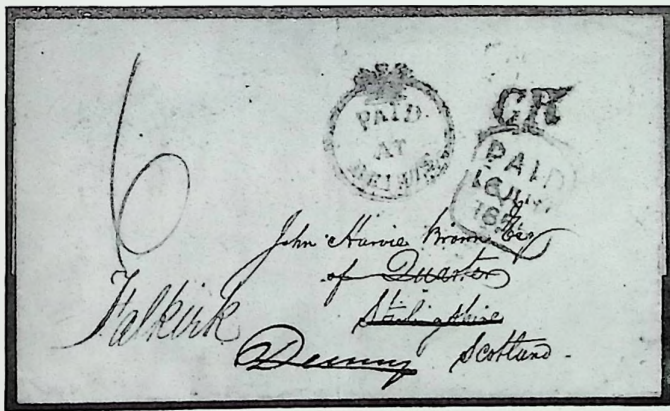 6
PAID
AT
BELIZE
GR
PAID
16 JU
185
John Harvie Brown Esq
of Quarter
Stirlingshire
Falkirk
Denny Scotland.